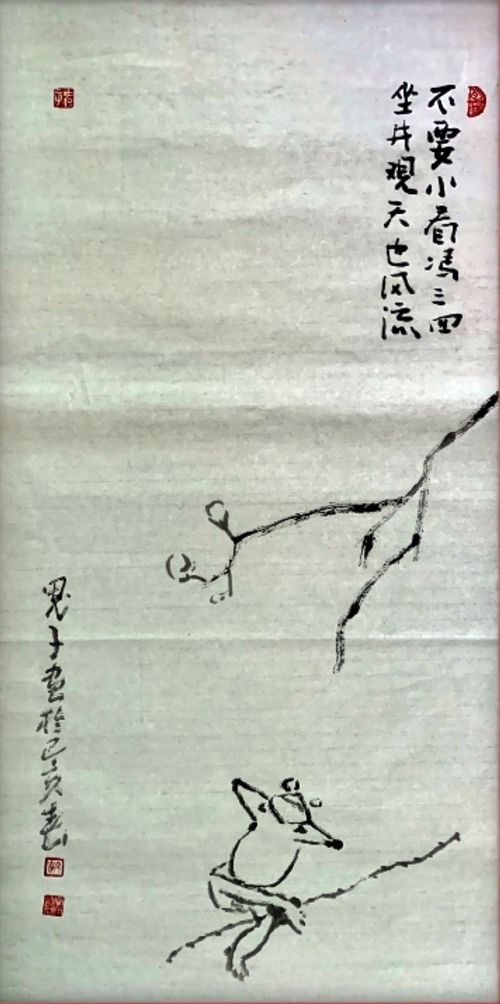 不要小看馮三四
坐井观天也风流
子画於己亥春